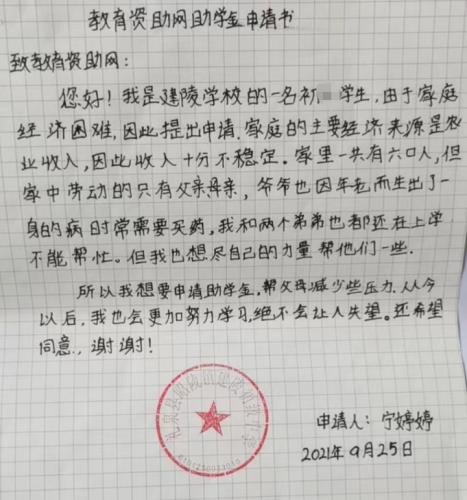 教育资助网助学金申请书
致教育资助网：
您好！我是建陵学校的一名初 学生，由于家庭
经济困难，因此提出申请，家庭的主要经济来源是农
业收入，因此收入十分不稳定。家里一共有六口人，但
家中劳动的只有父亲母亲，爷爷也因年老而生出了一
身的病时常需要买药，我和两个弟弟也都还在上学
不能帮忙。但我也想尽自己的力量帮他们一些.
所以我想要申请助学金，帮父母减少些压力.从今
以后，我也会更加努力学习，绝不会让人失望。还希望
同意.，谢谢！
申请人：宁婷婷
2021年9月25日